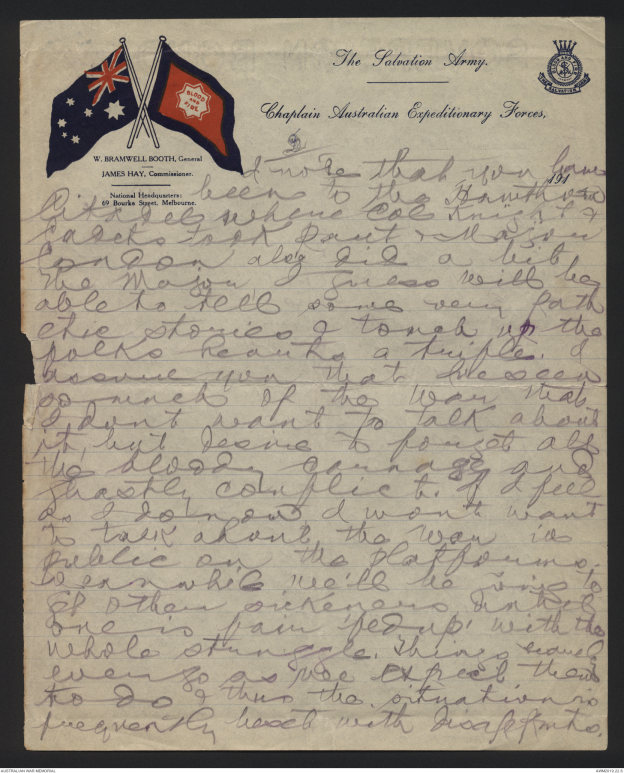 The Salvation Army.
Chaplain Australian Expeditionary Forces,
BLOOD AND FIRE
W. BRAMWELL BOOTH, General
JAMES HAY, Commissioner.
National Headquarters:
69 Bourke Street, Melbourne.
191
2
I note that you have
been to the Hawthorn
Citadel where Col Knight &
Cadets took part & Major
London also did a bit.
The Major I guess will be
able to tell some very path
etic stories & touch up the
folks hearts a trifle. I
assure you that I've seen
so much of the war that
I don't want to talk about
it, but desire to forget all
the bloody carnage and
ghastly conflict. If I feel
as I do now I won't want
to talk about the war in
public on the platforms.
Meanwhile we'll be
of other until
one is fair 'fed up' with the
whole struggle. Things
even go as we expect them
to do & thus the situation is
frequently beset with
AUSTRALIAN WAR MEMORIAL